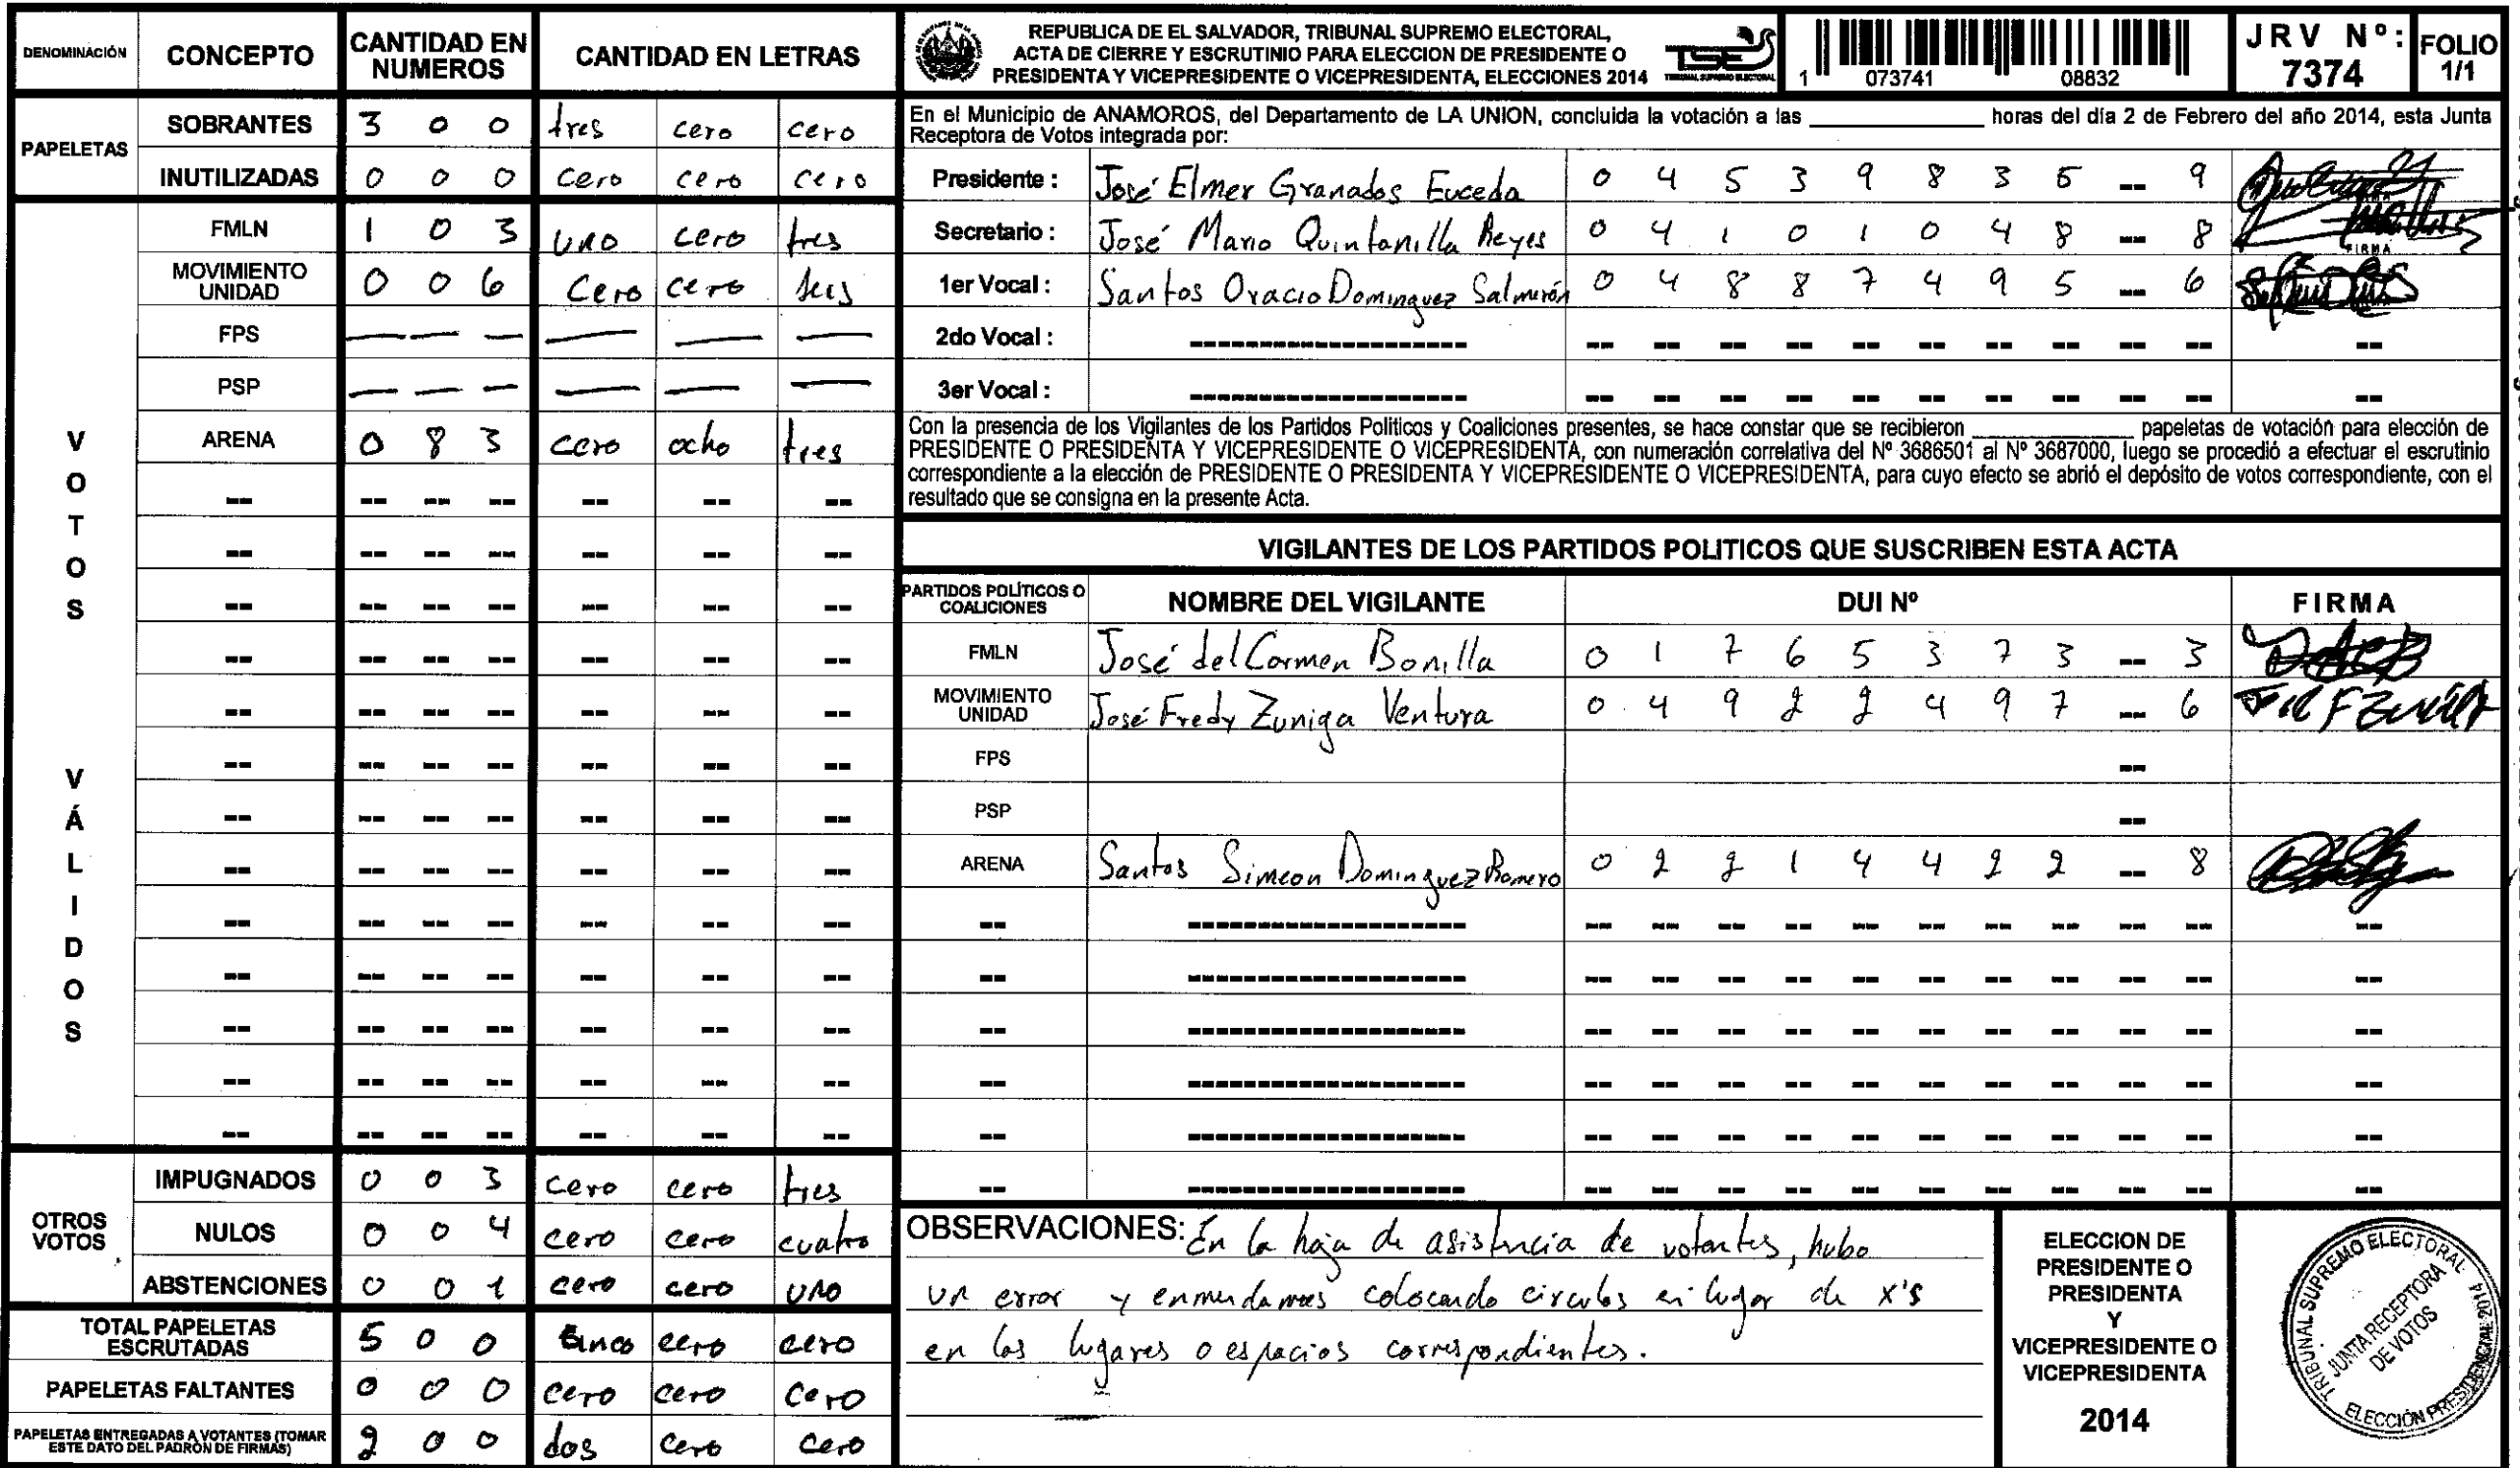 DENOMINACIÓN CONCEPTO CANTIDAD EN NUMEROS CANTIDAD EN LETRAS
PAPELETAS
SOBRANTES 3 0 0 tres cero cero
INUTILIZADAS 0 0 0 cero cero cero
VOTOS VÁLIDOS
FMLN 1 0 3 uno cero tres
MOVIMIENTO UNIDAD 0 0 6 cero cero seis
FPS — — — — — —
PSP — — — — — —
ARENA 0 8 3 cero ocho tres
OTROS VOTOS
IMPUGNADOS 0 0 3 cero cero tres
NULOS 0 0 4 cero cero cuatro
ABSTENCIONES 0 0 1 cero cero uno
TOTAL PAPELETAS ESCRUTADAS 5 0 0 cinco cero cero
PAPELETAS FALTANTES 0 0 0 cero cero cero
PAPELETAS ENTREGADAS A VOTANTES (TOMAR ESTE DATO DEL PADRÓN DE FIRMAS) 2 0 0 dos cero cero
REPUBLICA DE EL SALVADOR, TRIBUNAL SUPREMO ELECTORAL,
ACTA DE CIERRE Y ESCRUTINIO PARA ELECCION DE PRESIDENTE O
PRESIDENTA Y VICEPRESIDENTE O VICEPRESIDENTA, ELECCIONES 2014
TSE
TRIBUNAL SUPREMO ELECTORAL
1 073741 08832
JRV Nº: 7374
FOLIO 1/1
En el Municipio de ANAMOROS, del Departamento de LA UNION, concluida la votación a las ________ horas del día 2 de Febrero del año 2014, esta Junta
Receptora de Votos integrada por:
Presidente : José Elmer Granados Euceda 0 4 5 3 9 8 3 5 -- 9
Secretario : José Mario Quintanilla Reyes 0 4 1 0 1 0 4 8 -- 8 FIRMA
1er Vocal : Santos Oracio Dominguez Salmerón 0 4 8 8 7 4 9 5 -- 6
2do Vocal :
3er Vocal :
Con la presencia de los Vigilantes de los Partidos Politicos y Coaliciones presentes, se hace constar que se recibieron ________ papeletas de votación para elección de
PRESIDENTE O PRESIDENTA Y VICEPRESIDENTE O VICEPRESIDENTA, con numeración correlativa del Nº 3686501 al Nº 3687000, luego se procedió a efectuar el escrutinio
correspondiente a la elección de PRESIDENTE O PRESIDENTA Y VICEPRESIDENTE O VICEPRESIDENTA, para cuyo efecto se abrió el depósito de votos correspondiente, con el
resultado que se consigna en la presente Acta.
VIGILANTES DE LOS PARTIDOS POLITICOS QUE SUSCRIBEN ESTA ACTA
PARTIDOS POLÍTICOS O COALICIONES NOMBRE DEL VIGILANTE DUI Nº FIRMA
FMLN José del Carmen Bonilla 0 1 7 6 5 3 7 3 -- 3
MOVIMIENTO UNIDAD José Fredy Zuniga Ventura 0 4 9 2 2 4 9 7 -- 6
FPS --
PSP --
ARENA Santos Simeon Dominguez Romero 0 2 2 1 4 4 2 2 -- 8
OBSERVACIONES: En la hoja de asistencia de votantes, hubo
un error y enmendamos colocando circulos en lugar de x's
en los lugares o espacios correspondientes.
ELECCION DE
PRESIDENTE O
PRESIDENTA
Y
VICEPRESIDENTE O
VICEPRESIDENTA
2014
TRIBUNAL SUPREMO ELECTORAL
JUNTA RECEPTORA
DE VOTOS
ELECCIÓN PRESIDENCIAL 2014